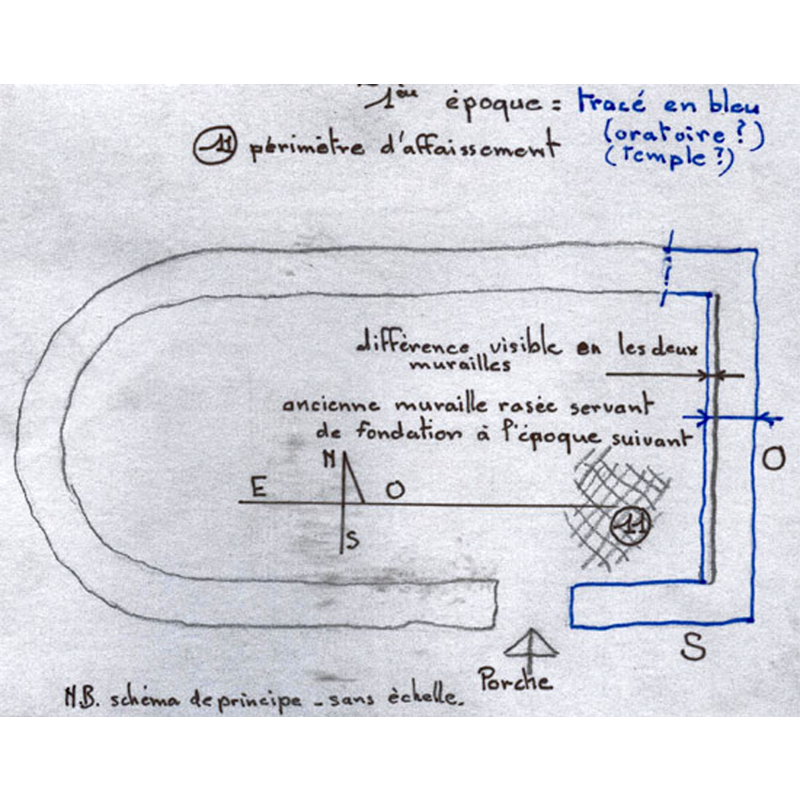 1ère époque = tracé en bleu
(oratoire ?)
(Temple ?)
11 périmètre d'affaissement
différence visible en les deux
murailles
ancienne muraille rasée servant
de fondation à l'époque suivant
O
N
E O
S
11
S
Porche
N.B. schéma de principe - sans échelle.